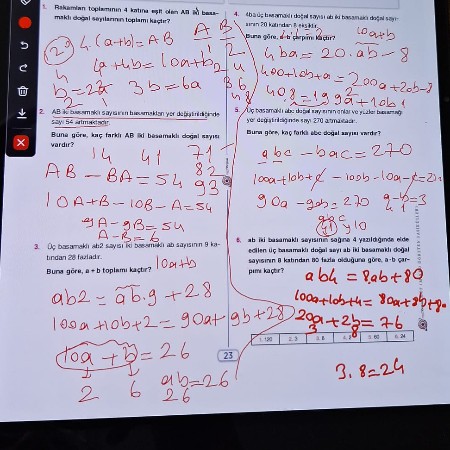 1. Rakamları toplamının 4 katına eşit olan AB iki basa-
maklı doğal sayılarının toplamı kaçtır?
4.(a+b)=AB
4a+4b=10a+b
3b=6a
b=2a
AB
12
24
36
48
2. AB iki basamaklı sayısının basamakları yer değiştirildiğinde
sayı 54 artmaktadır.
Buna göre, kaç farklı AB iki basamaklı doğal sayısı
vardır?
14 41 71
82
93
AB-BA=54
10A+B-10B-A=54
9A-9B=54
A-B=6
3. Üç basamaklı ab2 sayısı iki basamaklı ab sayısının 9 ka-
tından 28 fazladır.
Buna göre, a + b toplamı kaçtır?
10a+b
ab2=ab.9+28
100a+10b+2=90a+9b+28
10a+b=26
2 6
ab=26
26
4. 4ba üç basamaklı doğal sayısı ab iki basamaklı doğal sayı-
sının 20 katından 8 eksiktir.
Buna göre, a.b çarpımı kaçtır?
10a+b
4ba=20.ab-8
400+10b+a=200a+20b-8
408=199a+10b
5. Üç basamaklı abc doğal sayısının onlar ve yüzler basamağı
yer değiştirildiğinde sayı 270 azalmaktadır.
Buna göre, kaç farklı abc doğal sayısı vardır?
abc-bac=270
100a+10b+c-100b-10a-c=270
90a-90b=270
a-b=3
4 1
abc
41 10
6. ab iki basamaklı sayısının sağına 4 yazıldığında elde
edilen üç basamaklı doğal sayı ab iki basamaklı doğal
sayısının 8 katından 80 fazla olduğuna göre, a·b çar-
pımı kaçtır?
ab4=8ab+80
100a+10b+4=80a+8b+80
20a+2b=76
3 8
3.8=24
23